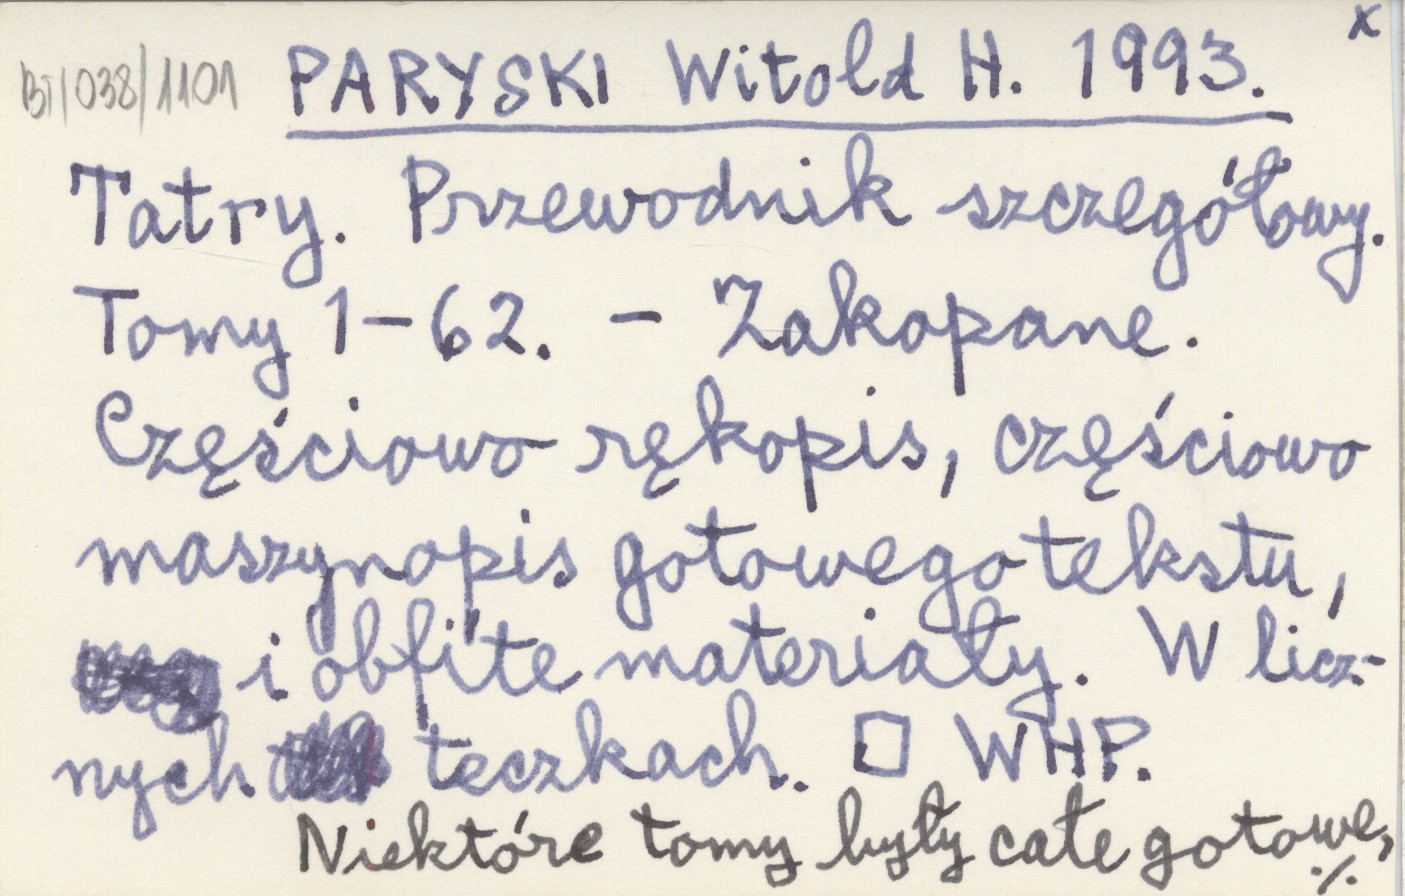 x
BT/038/1101 PARYSKI Witold H. 1993.
Tatry. Przewodnik szczegółowy.
Tomy 1-62. - Zakopane.
Częściowo rękopis, częściowo
maszynopis gotowego tekstu,
i obfite materiały. W licz-
nych teczkach. □ WHP.
Niektóre tomy były całe gotowe,
./.